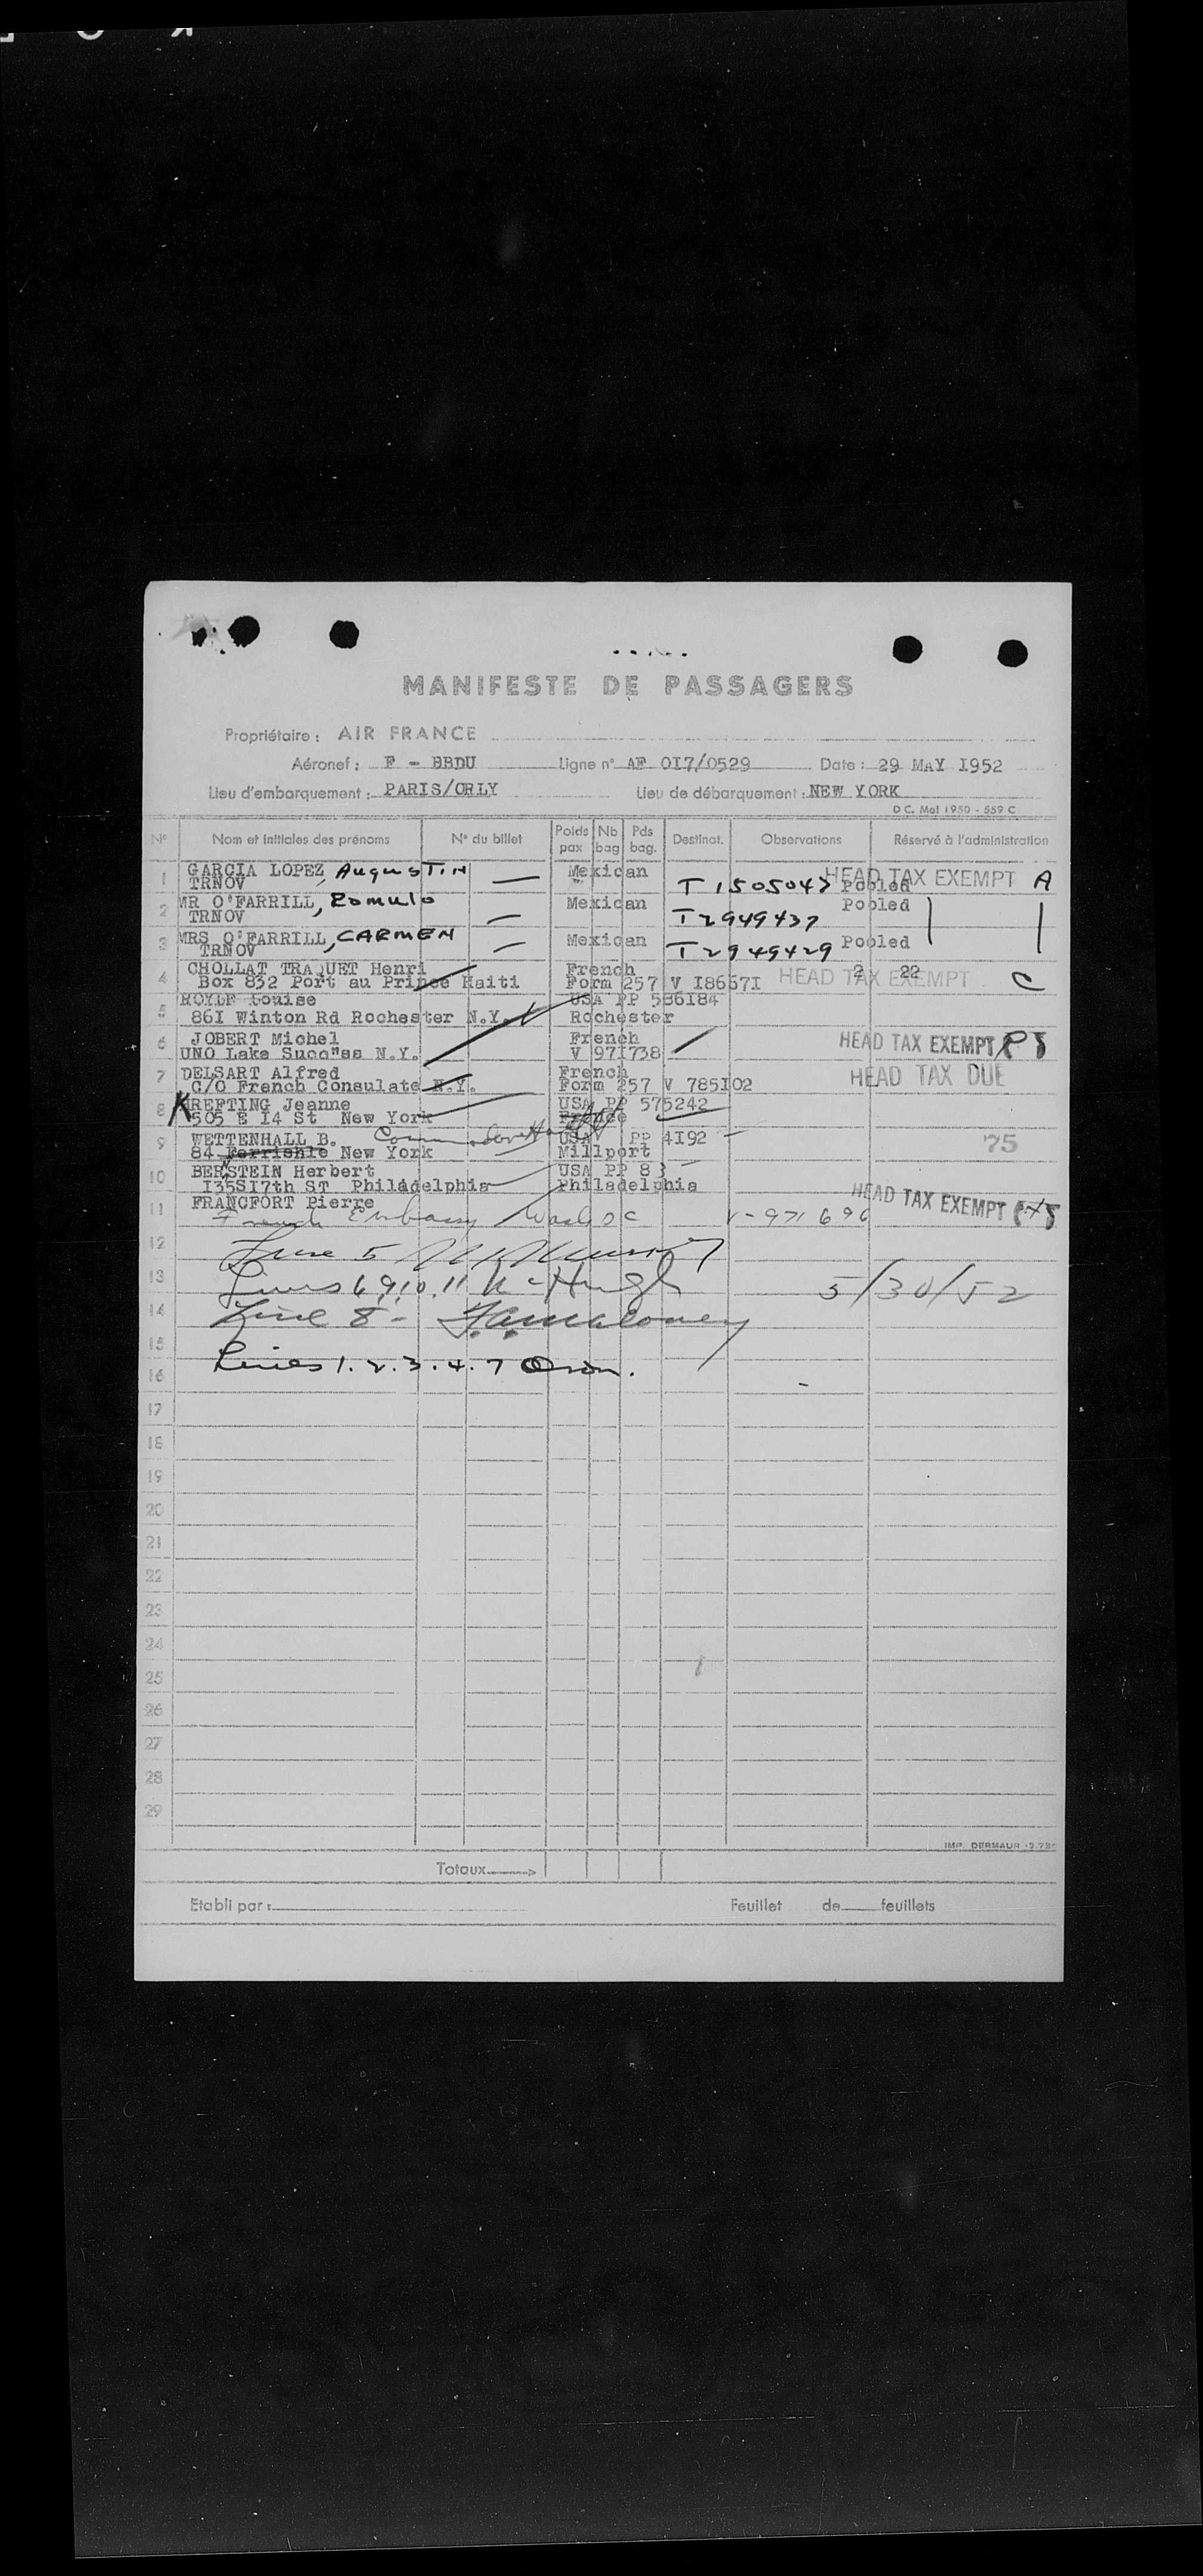 MANIFESTE DE PASSAGERS
Propriétaire : AIR FRANCE
Aéronef : F - BBDU Ligne n° AF 0I7/0529 Date : 29 MAY I952
Lieu d'embarquement : PARIS/ORLY Lieu de débarquement : NEW YORK
D C. Mat 1950 - 559 C
N° Nom et initiales des prénoms N° du billet Poids pax Nb bag Pds bag. Destinat. Observations Réservé à l'administration
1 GARCIA LOPEZ, AugusTin — Mexican HEAD TAX EXEMPT A
TRNOV T 1505047 Pooled
2 MR O'FARRILL, Romulo Mexican Pooled
TRNOV — T2949437
3 MRS O'FARRILL, CARMEN — Mexican T2949429 Pooled
TRNOV
4 CHOLLAT TRAQUET Henri French 2 22 HEAD TAX EXEMPT C
Box 832 Port au Prince Haiti Form 257 V I8667I
5 ROYLE Louise USA PP 586I84
86I Winton Rd Rochester N.Y. Rochester
6 JOBERT Michel French HEAD TAX EXEMPT
UNO Lake Success N.Y. V 97I738
7 DELSART Alfred French HEAD TAX DUE
C/O French Consulate N.Y. Form 257 V 785I02
8 KREFTING Jeanne USA PP 575242
505 E I4 St New York France
9 WETTENHALL B. Commodore Hotel USA PP 4I92 —
84 Ferrishie New York Millport 75
10 BERSTEIN Herbert USA PP 83
I35SI7th ST Philadelphia Philadelphia
11 FRANCFORT Pierre HEAD TAX EXEMPT
French Embassy Wash DC V-971696
12 Line 5
13 Lines 6, 9, 10, 11 McHugh 5/30/52
14 Line 8 - F.A. Maloney
15
16 Lines 1. 2. 3. 4. 7
17
18
19
20
21
22
23
24
25
26
27
28
29
IMP. DERMAUR
Totaux
Etabli par : Feuillet de feuillets